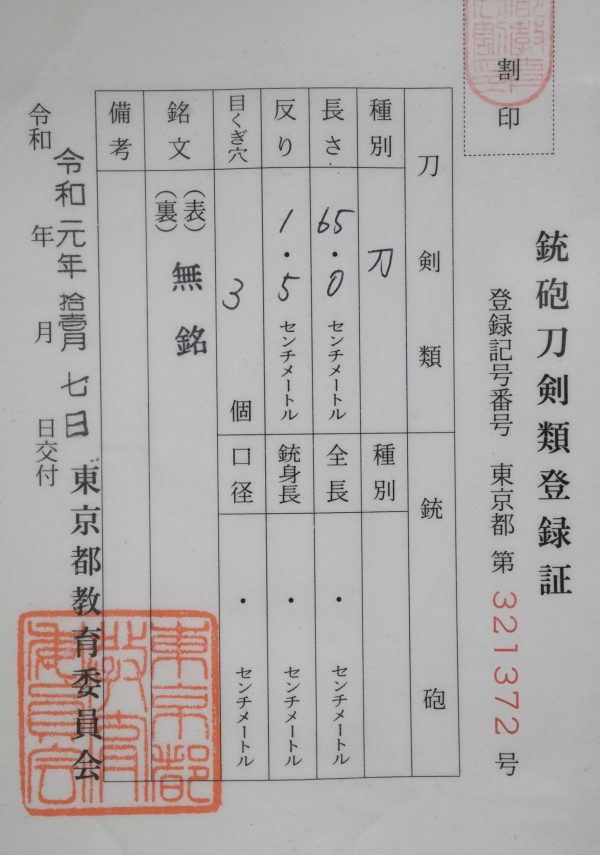 割印
銃砲刀剣類登録証
登録記号番号 東京都 第 321372 号
刀剣類 銃砲
種別 刀 種別
長さ 65・0 センチメートル 全長 ・ センチメートル
反り 1・5 センチメートル 銃身長 ・ センチメートル
目くぎ穴 3 個 口径 ・ センチメートル
銘文 (表) 無銘
(裏)
備考
令和元年拾壹月七日
令和 年 月 日交付
東京都教育委員会
東京都教育委員会